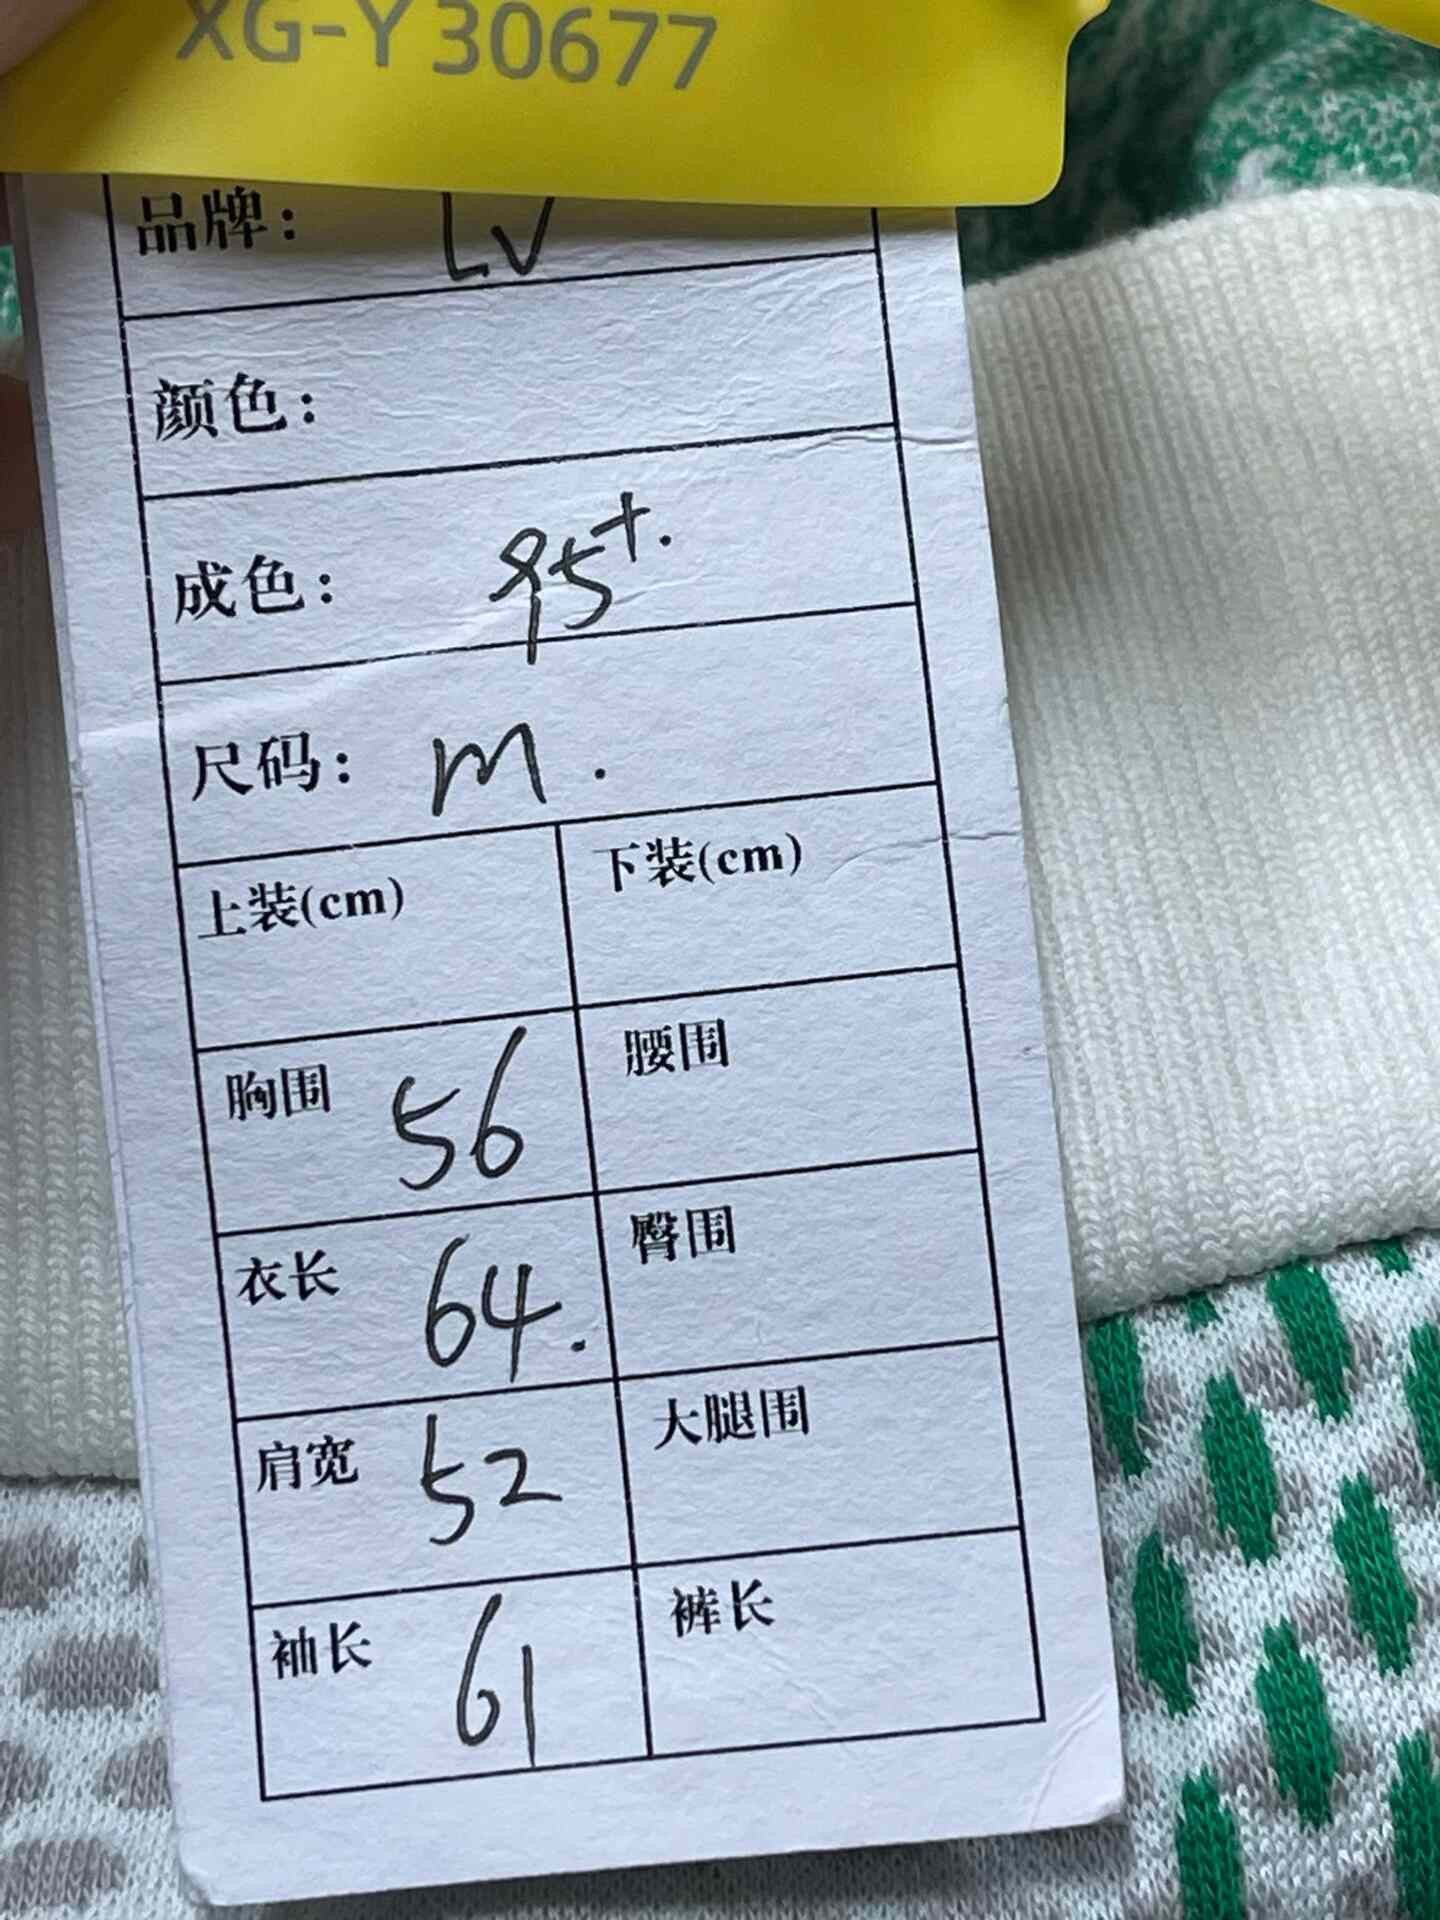 XG-Y30677
品牌： LV
颜色：
成色： 95+.
尺码： M .
上装(cm) 下装(cm)
胸围 56 腰围
衣长 64. 臀围
肩宽 52 大腿围
袖长 61 裤长